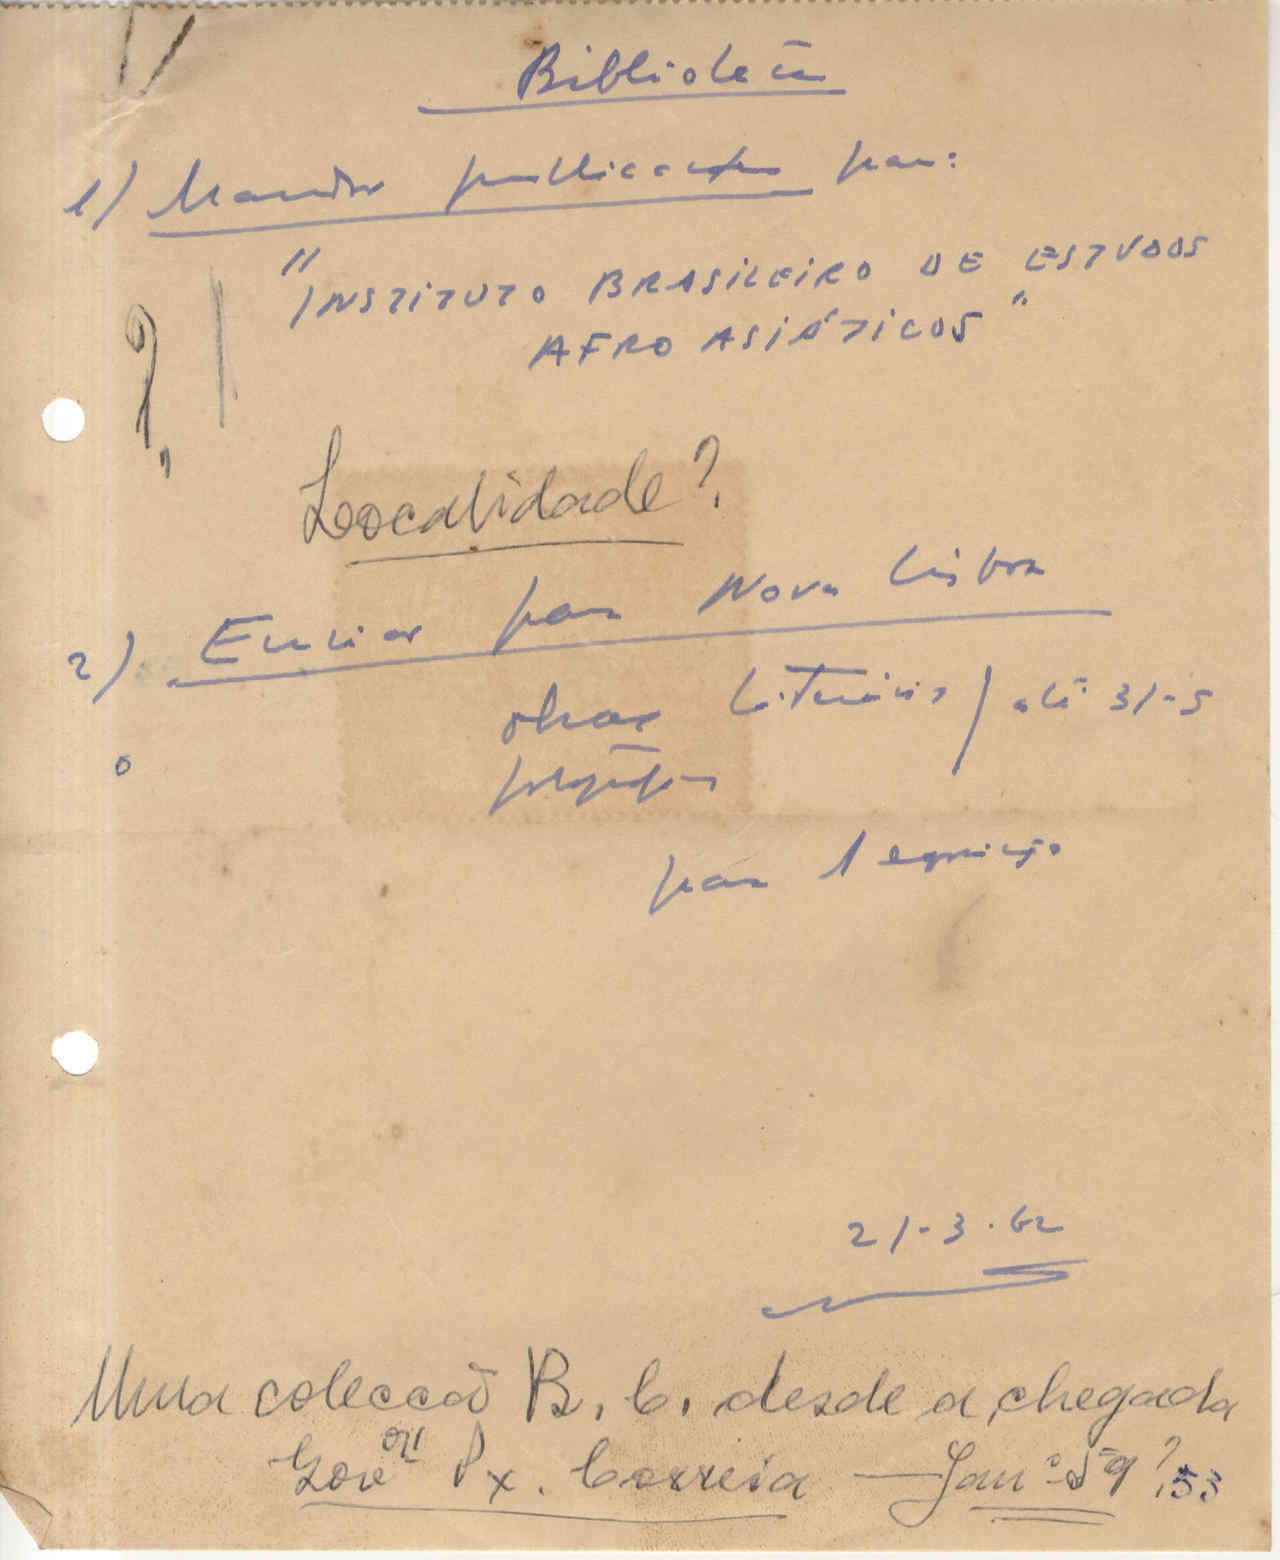 Biblioteca
1) Mandar publicações para:
"INSTITUTO BRASILEIRO DE ESTUDOS
AFRO ASIÁTICOS"
?
Localidade?
2) Enviar para Nova Lisboa
obras Literárias / até 31-5
para
21-3-62
Uma colecção B. C. desde a chegada
Gov.or Px. Correia — Jan.º 59?
53